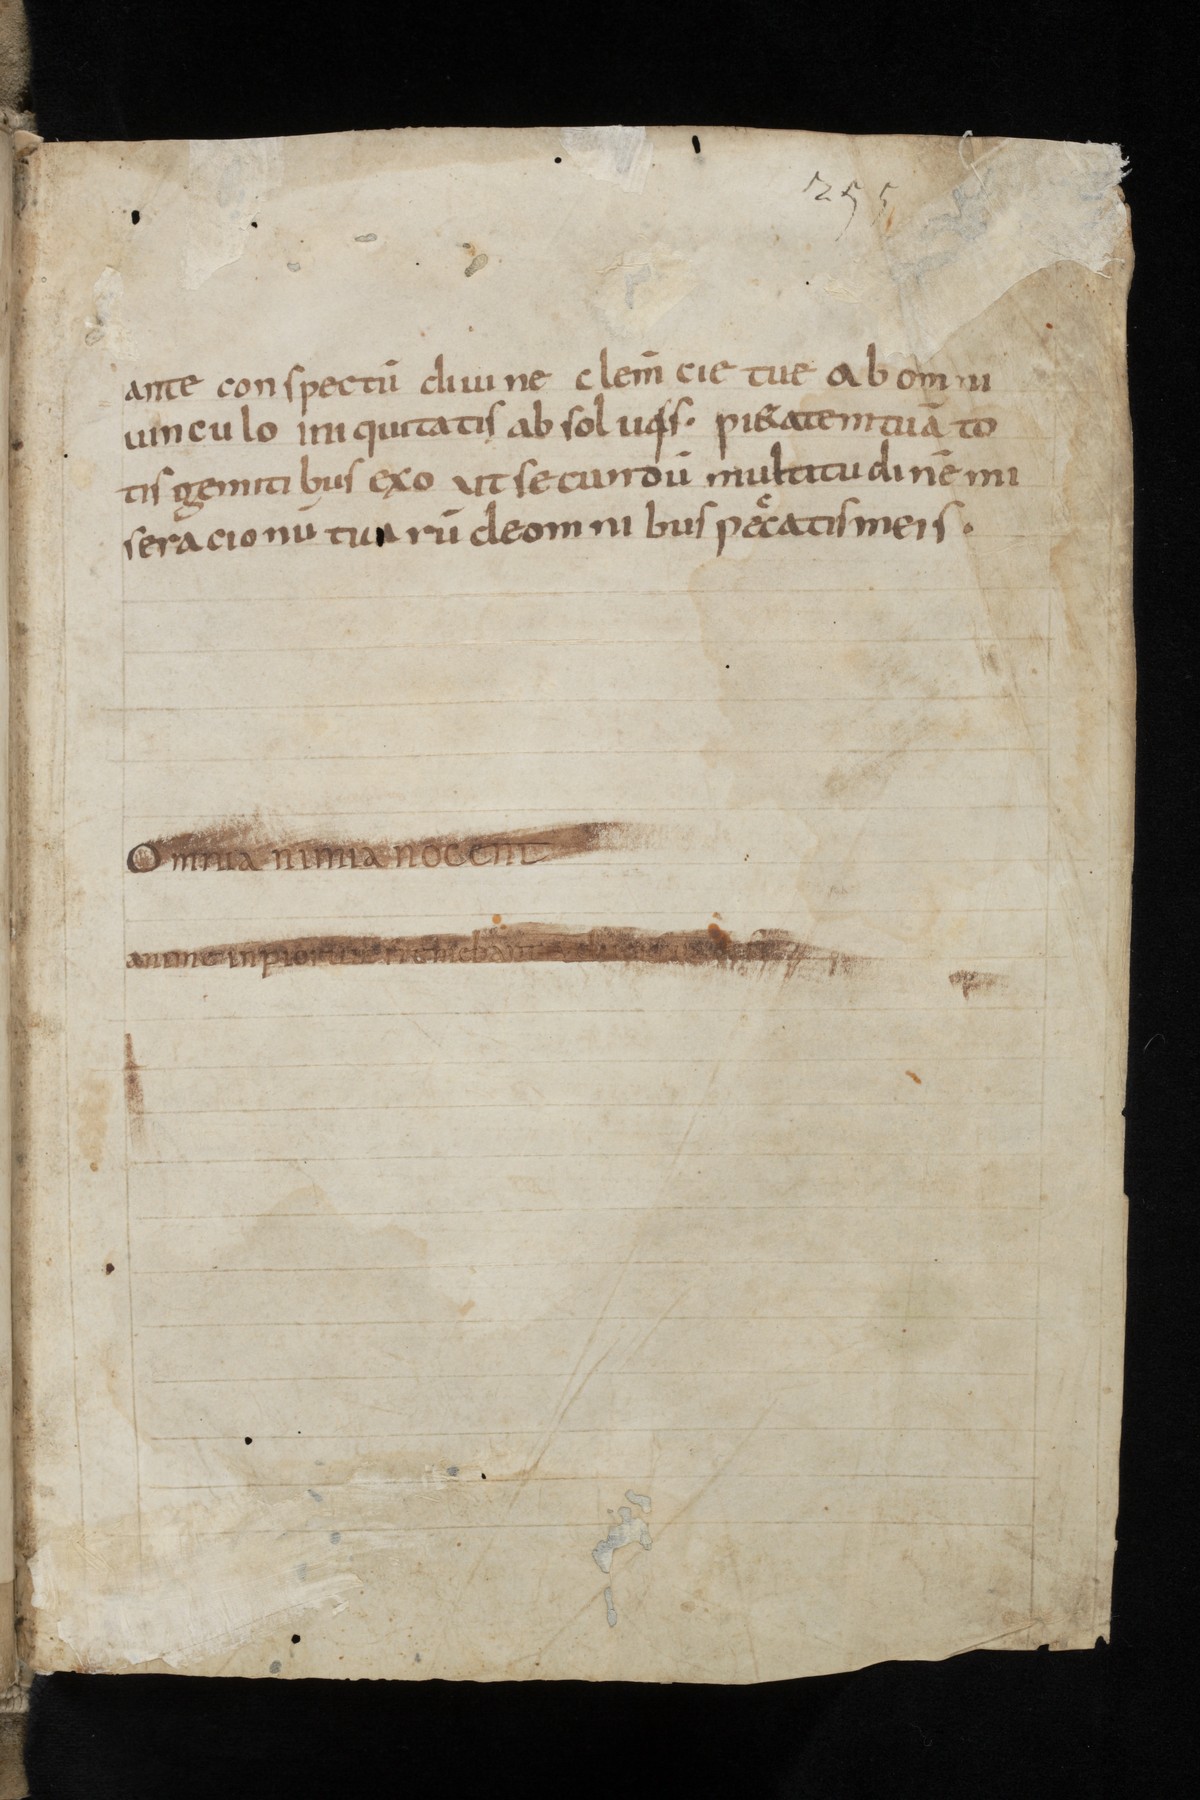 255
ante conspectū diuine clem̄cie tue ab omni
uinculo iniquitatis absoluas. pietatem tuā to
tis gemitibus exo ut secundū multitudinē mi
seracionū tuarū de omnibus peccatis meis.
Omnia nimia nocent
anime inpiorum